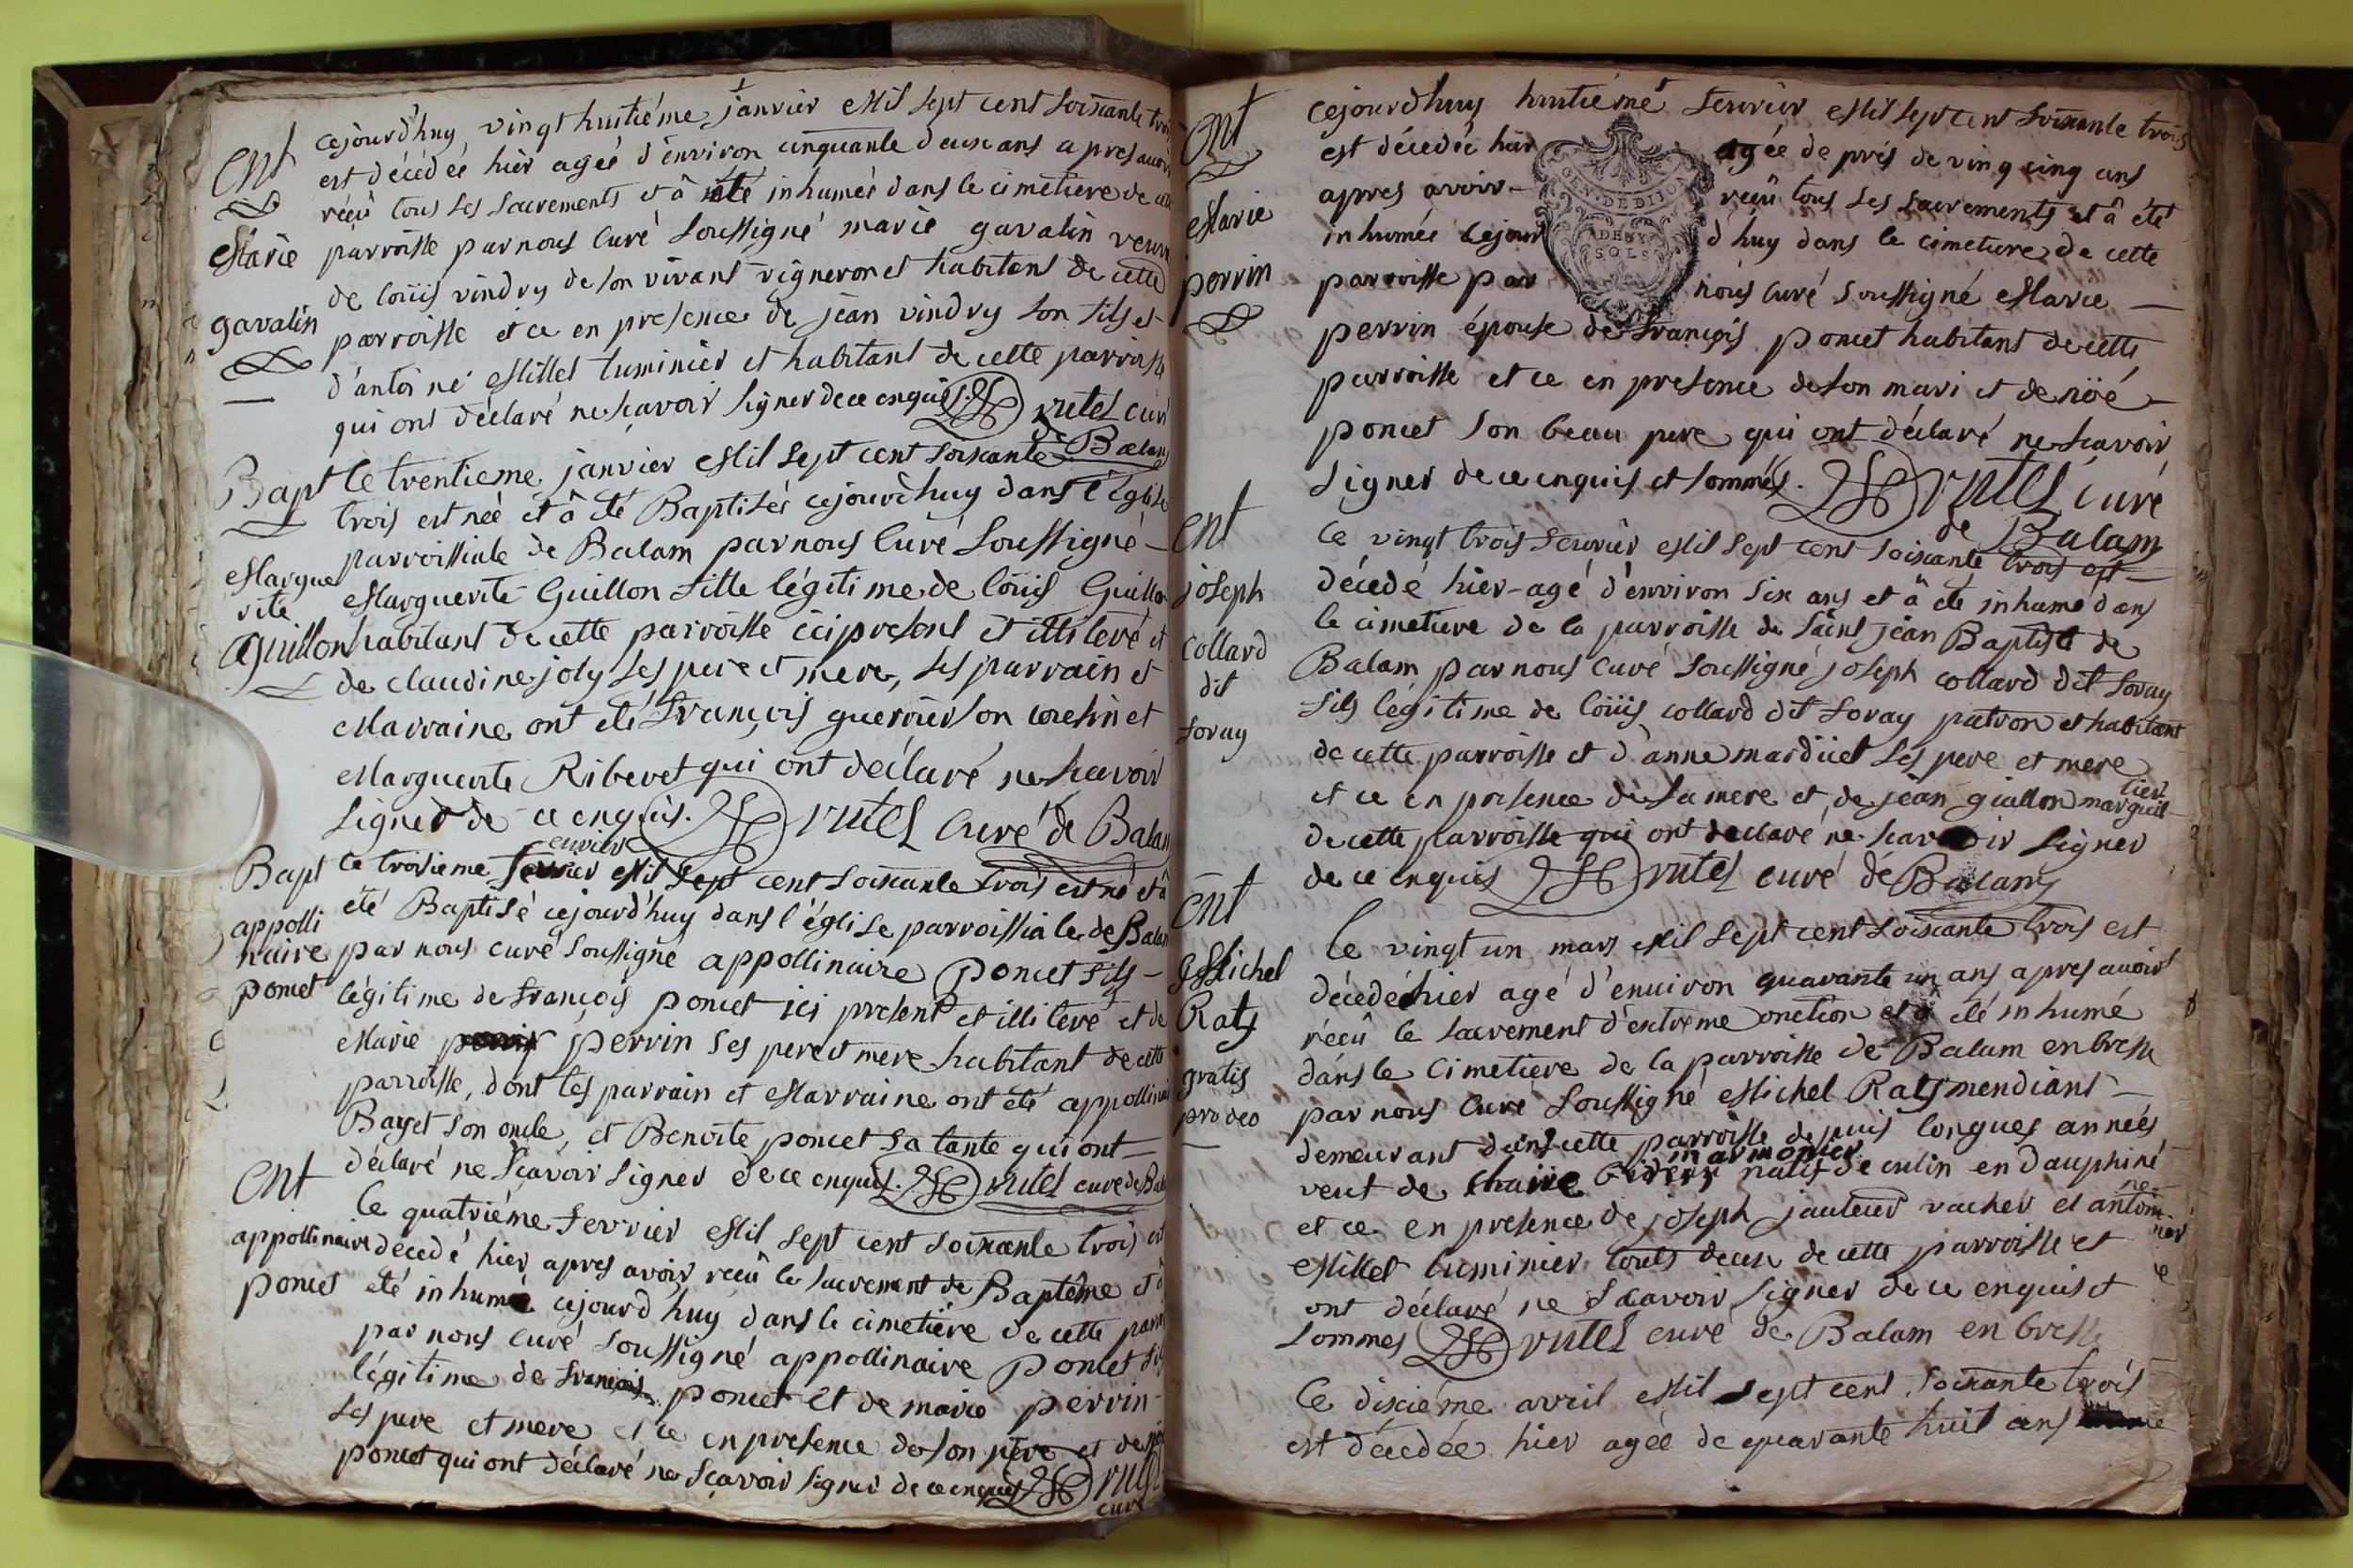 Ent
Marie
gavalin
cejourd'huy vingt huitiéme janvier Mil sept cent soixante trois
est décédée hier ageé d'environ cinquante deux ans apres avoir
réçû tous ses sacrements et â été inhumée dans le cimetiere de cette
parroisse par nous Curé soussigné marie gavalin veuve
de loüis vindry de son vivant vigneron et habitant de cette
parroisse et ce en presence de jean vindry son fils et
d'antoine Millet luminier et habitant de cette parroisse
qui ont déclaré ne sçavoir signer de ce enquis. rutel curé
de Balam
Bapt
Margue
rite
Guillon
le trentieme janvier Mil sept cent soixante
trois est née et â été Baptisée cejourd'huy dans l'église
parroissiale de Balam par nous Curé soussigné
Marguerite Guillon fille légitime de loüis Guillon
habitant de cette parroisse ici present et illiteré et
de claudine joly ses pere et mere, ses parrain et
Marraine ont été françois guerrier son cousin et
Marguerite Riberet qui ont déclaré ne sçavoir
signer de ce enquis. rutel Curé de Balam
Bapt
appolli
naire
poncet
le troisieme fevrier Mil sept cent soixante trois est né et â
été Baptisé cejourd'huy dans l'église parroissiale de Balam
par nous curé soussigné appollinaire poncet fils
légitime de françois poncet ici present et illiteré et de
Marie perrin ses pere et mere habitant de cette
parroisse, dont les parrain et Marraine ont été appollinaire
Bayet son oncle, et Benoite poncet sa tante qui ont
déclaré ne sçavoir signer de ce enquis. rutel curé de Bal
Ent
appollinaire
poncet
le quatriéme fevrier Mil sept cent soixante trois est
décedé hier apres avoir reçû le sacrement de Baptême et â
été inhumé cejourd'huy dans le cimetiére de cette parroi
par nous Curé soussigné appollinaire poncet fils
légitime de françois poncet et de marie perrin
ses pere et mere et ce en presence de son père et de
poncet qui ont déclaré ne sçavoir signer de ce enquis rutel
curé
Ent
Marie
perrin
cejourd'huy huitiéme fevrier Mil sept cent soixante trois
est décedée hier agée de prés de vingt cinq ans
apres avoir reçû tous ses sacrements et â été
inhumée cejour d'huy dans le cimetiere de cette
parroisse par nous Curé soussigné Marie
perrin épouse de françois poncet habitant de cette
parroisse et ce en presence de son mari et de nöé
poncet son beau pere qui ont déclaré ne sçavoir
signer de ce enquis et sommés. rutel curé
de Balam
GEN. DE DIJON
DEUX
SOLS
Ent
joseph
collard
dit
foray
le vingt trois fevrier Mil sept cent soixante trois est
décedé hier agé d'environ six ans et â été inhumé dans
le cimetiere de la parroisse de saint jean Baptiste de
Balam par nous curé soussigné joseph collard dit foray
fils légitime de loüis collard dit foray patron et habitant
de cette parroisse et d'anne marduel ses pere et mere
et ce en présence de sa mere et de jean guillon marguil-
lier
de cette parroisse qui ont declaré ne sçavoir signer
de ce enquis rutel curé de Balam
Ent
Michel
Raty
gratis
pro deo
le vingt un mars Mil sept cent soixante trois est
décedé hier agé d'environ quarante un ans apres avoir
réçû le sacrement d'extreme onction et â été inhumé
dans le Cimetiere de la parroisse de Balam en bresse
par nous Curé soussigné Michel Raty mendiant
demeurant dans cette parroisse depuis longues années
marmonier
veuf de natif de culin en dauphiné
et ce en presence de joseph jauteur vacher et antoi-
ne
Millet luminier touts deux de cette parroisse et
ont déclaré ne sçavoir signer de ce enquis et
sommes rutel curé de Balam en bresse
le dixiéme avril Mil sept cent soixante trois
est décedée hier agée de quarante huit ans